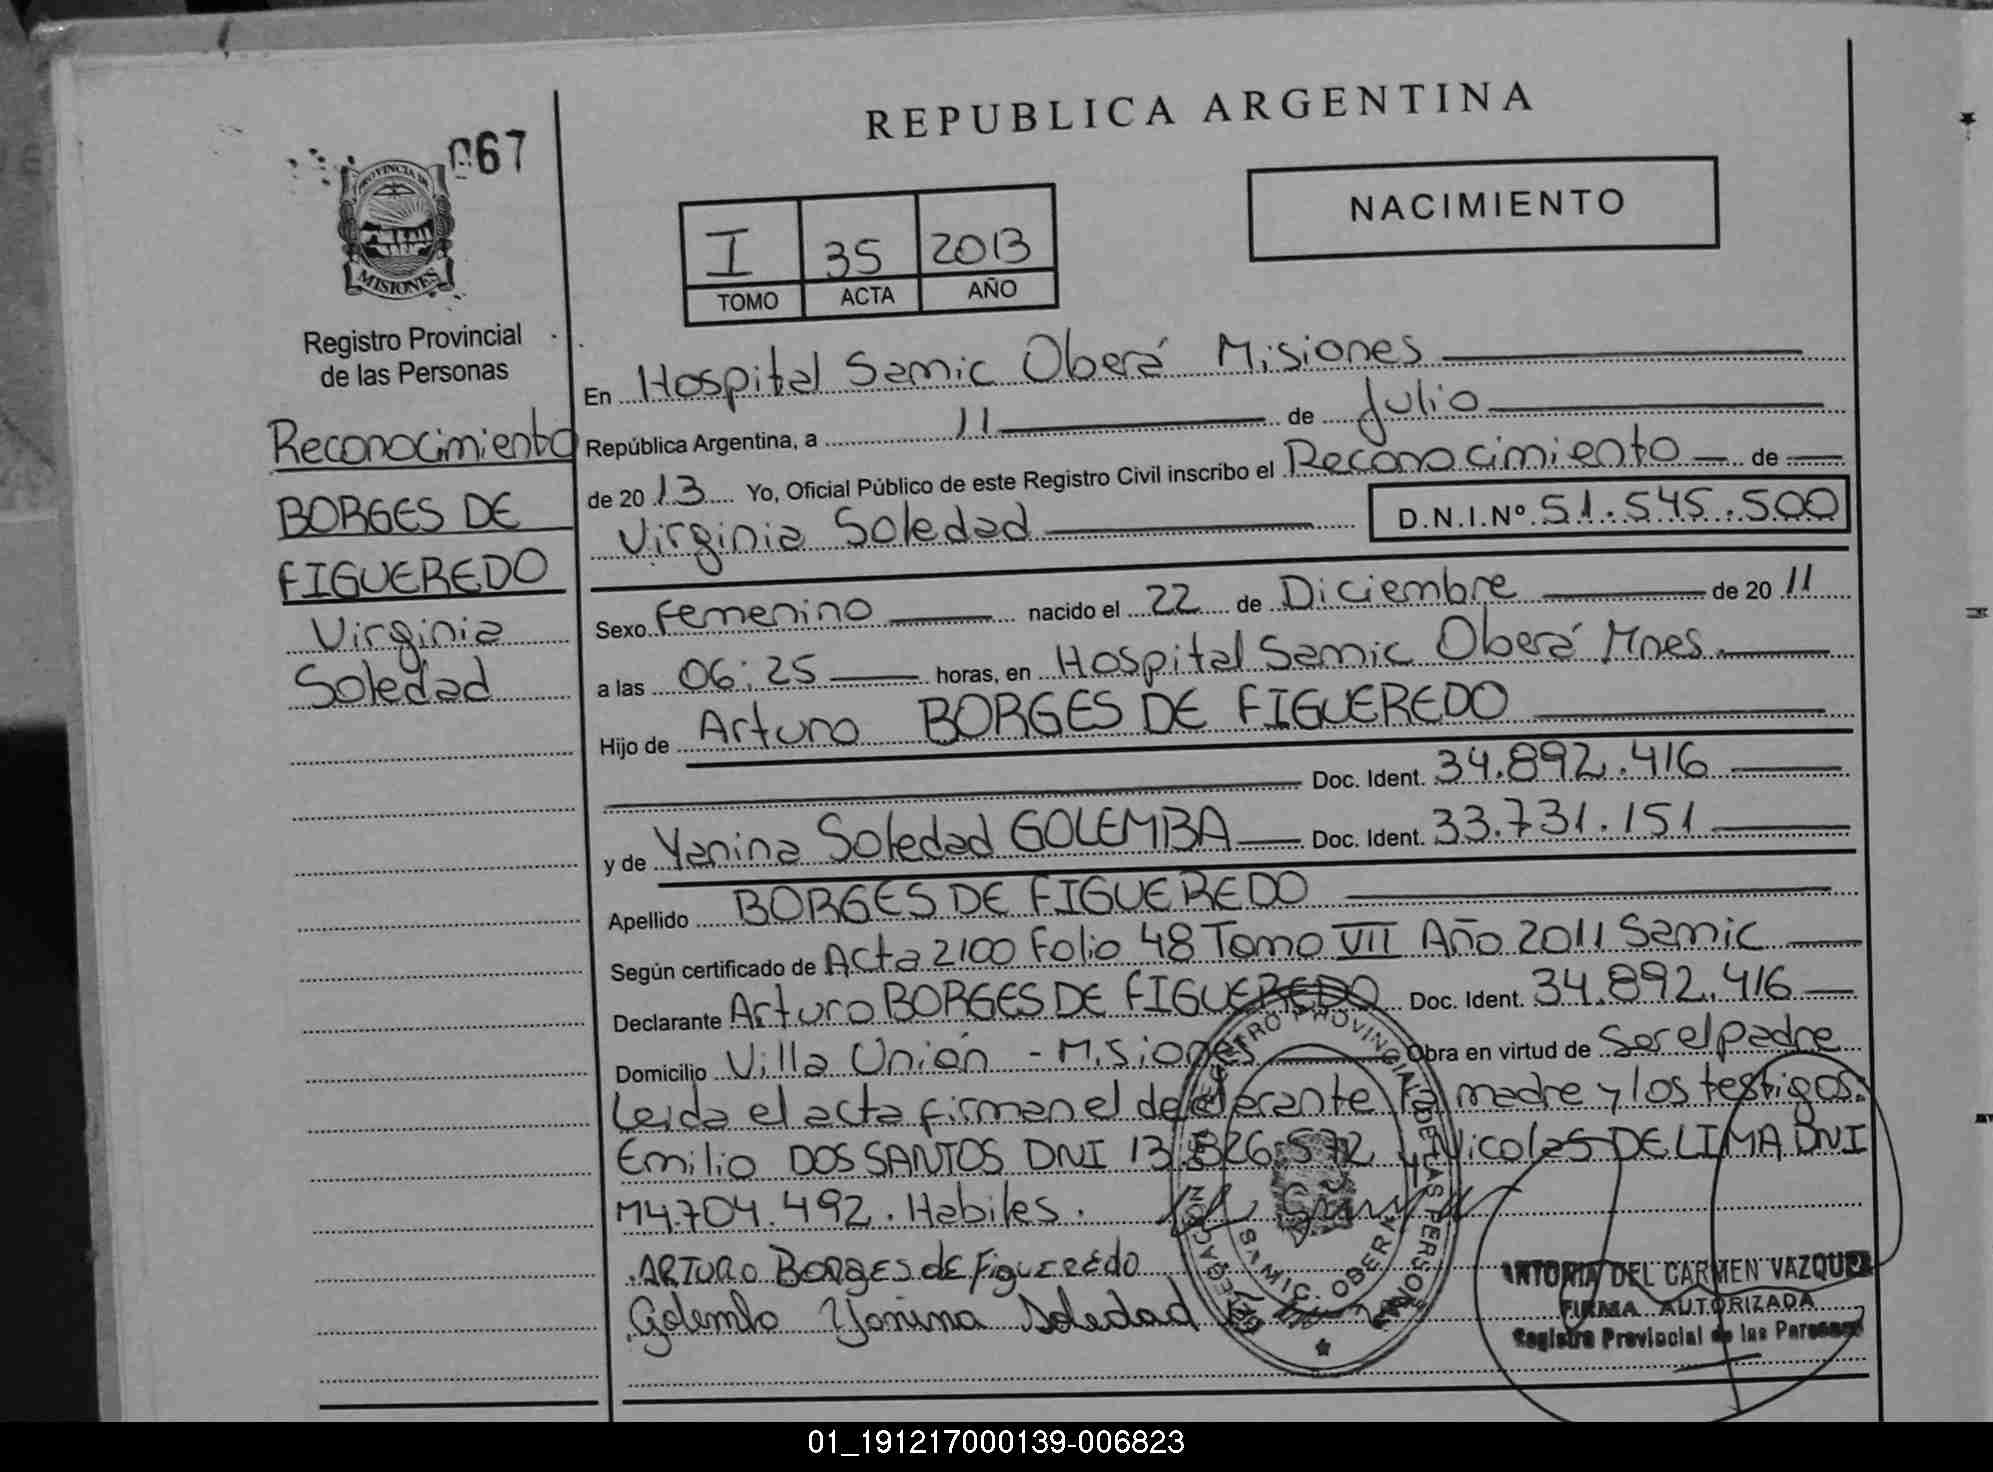 REPUBLICA ARGENTINA
067
PROVINCIA DE
MISIONES
NACIMIENTO
I 35 2013
TOMO ACTA AÑO
Registro Provincial
de las Personas
Reconocimiento
BORGES DE
FIGUEREDO
Virginia
Soledad
En Hospital Samic Oberá Misiones
República Argentina, a 11 de Julio
de 2013 Yo, Oficial Público de este Registro Civil inscribo el Reconocimiento de
Virginia Soledad D.N.I.Nº 51.545.500
Sexo Femenino nacido el 22 de Diciembre de 2011
a las 06:25 horas, en Hospital Samic Oberá Mnes
Hijo de Arturo BORGES DE FIGUEREDO
Doc. Ident. 34.892.416
y de Yanina Soledad GOLEMBA Doc. Ident. 33.731.151
Apellido BORGES DE FIGUEREDO
Según certificado de Acta 2100 Folio 48 Tomo VII Año 2011 Samic
Declarante Arturo BORGES DE FIGUEREDO Doc. Ident. 34.892.416
Domicilio Villa Unión - Misiones Obra en virtud de Ser el padre
Leida el acta firman el declarante la madre y los testigos:
Emilio DOS SANTOS DNI 13 Nicolas DE LIMA DNI
M4.704.492. Habiles.
ARTURO BORGES dE FiguerEdo
Golemba Yanina Soledad
REGISTRO PROVINCIAL DE LAS PERSONAS
SAMIC. OBERA
DEL CARMEN VAZQUEZ
FIRMA AUTORIZADA
Registro Provincial de las Personas
01_191217000139-006823